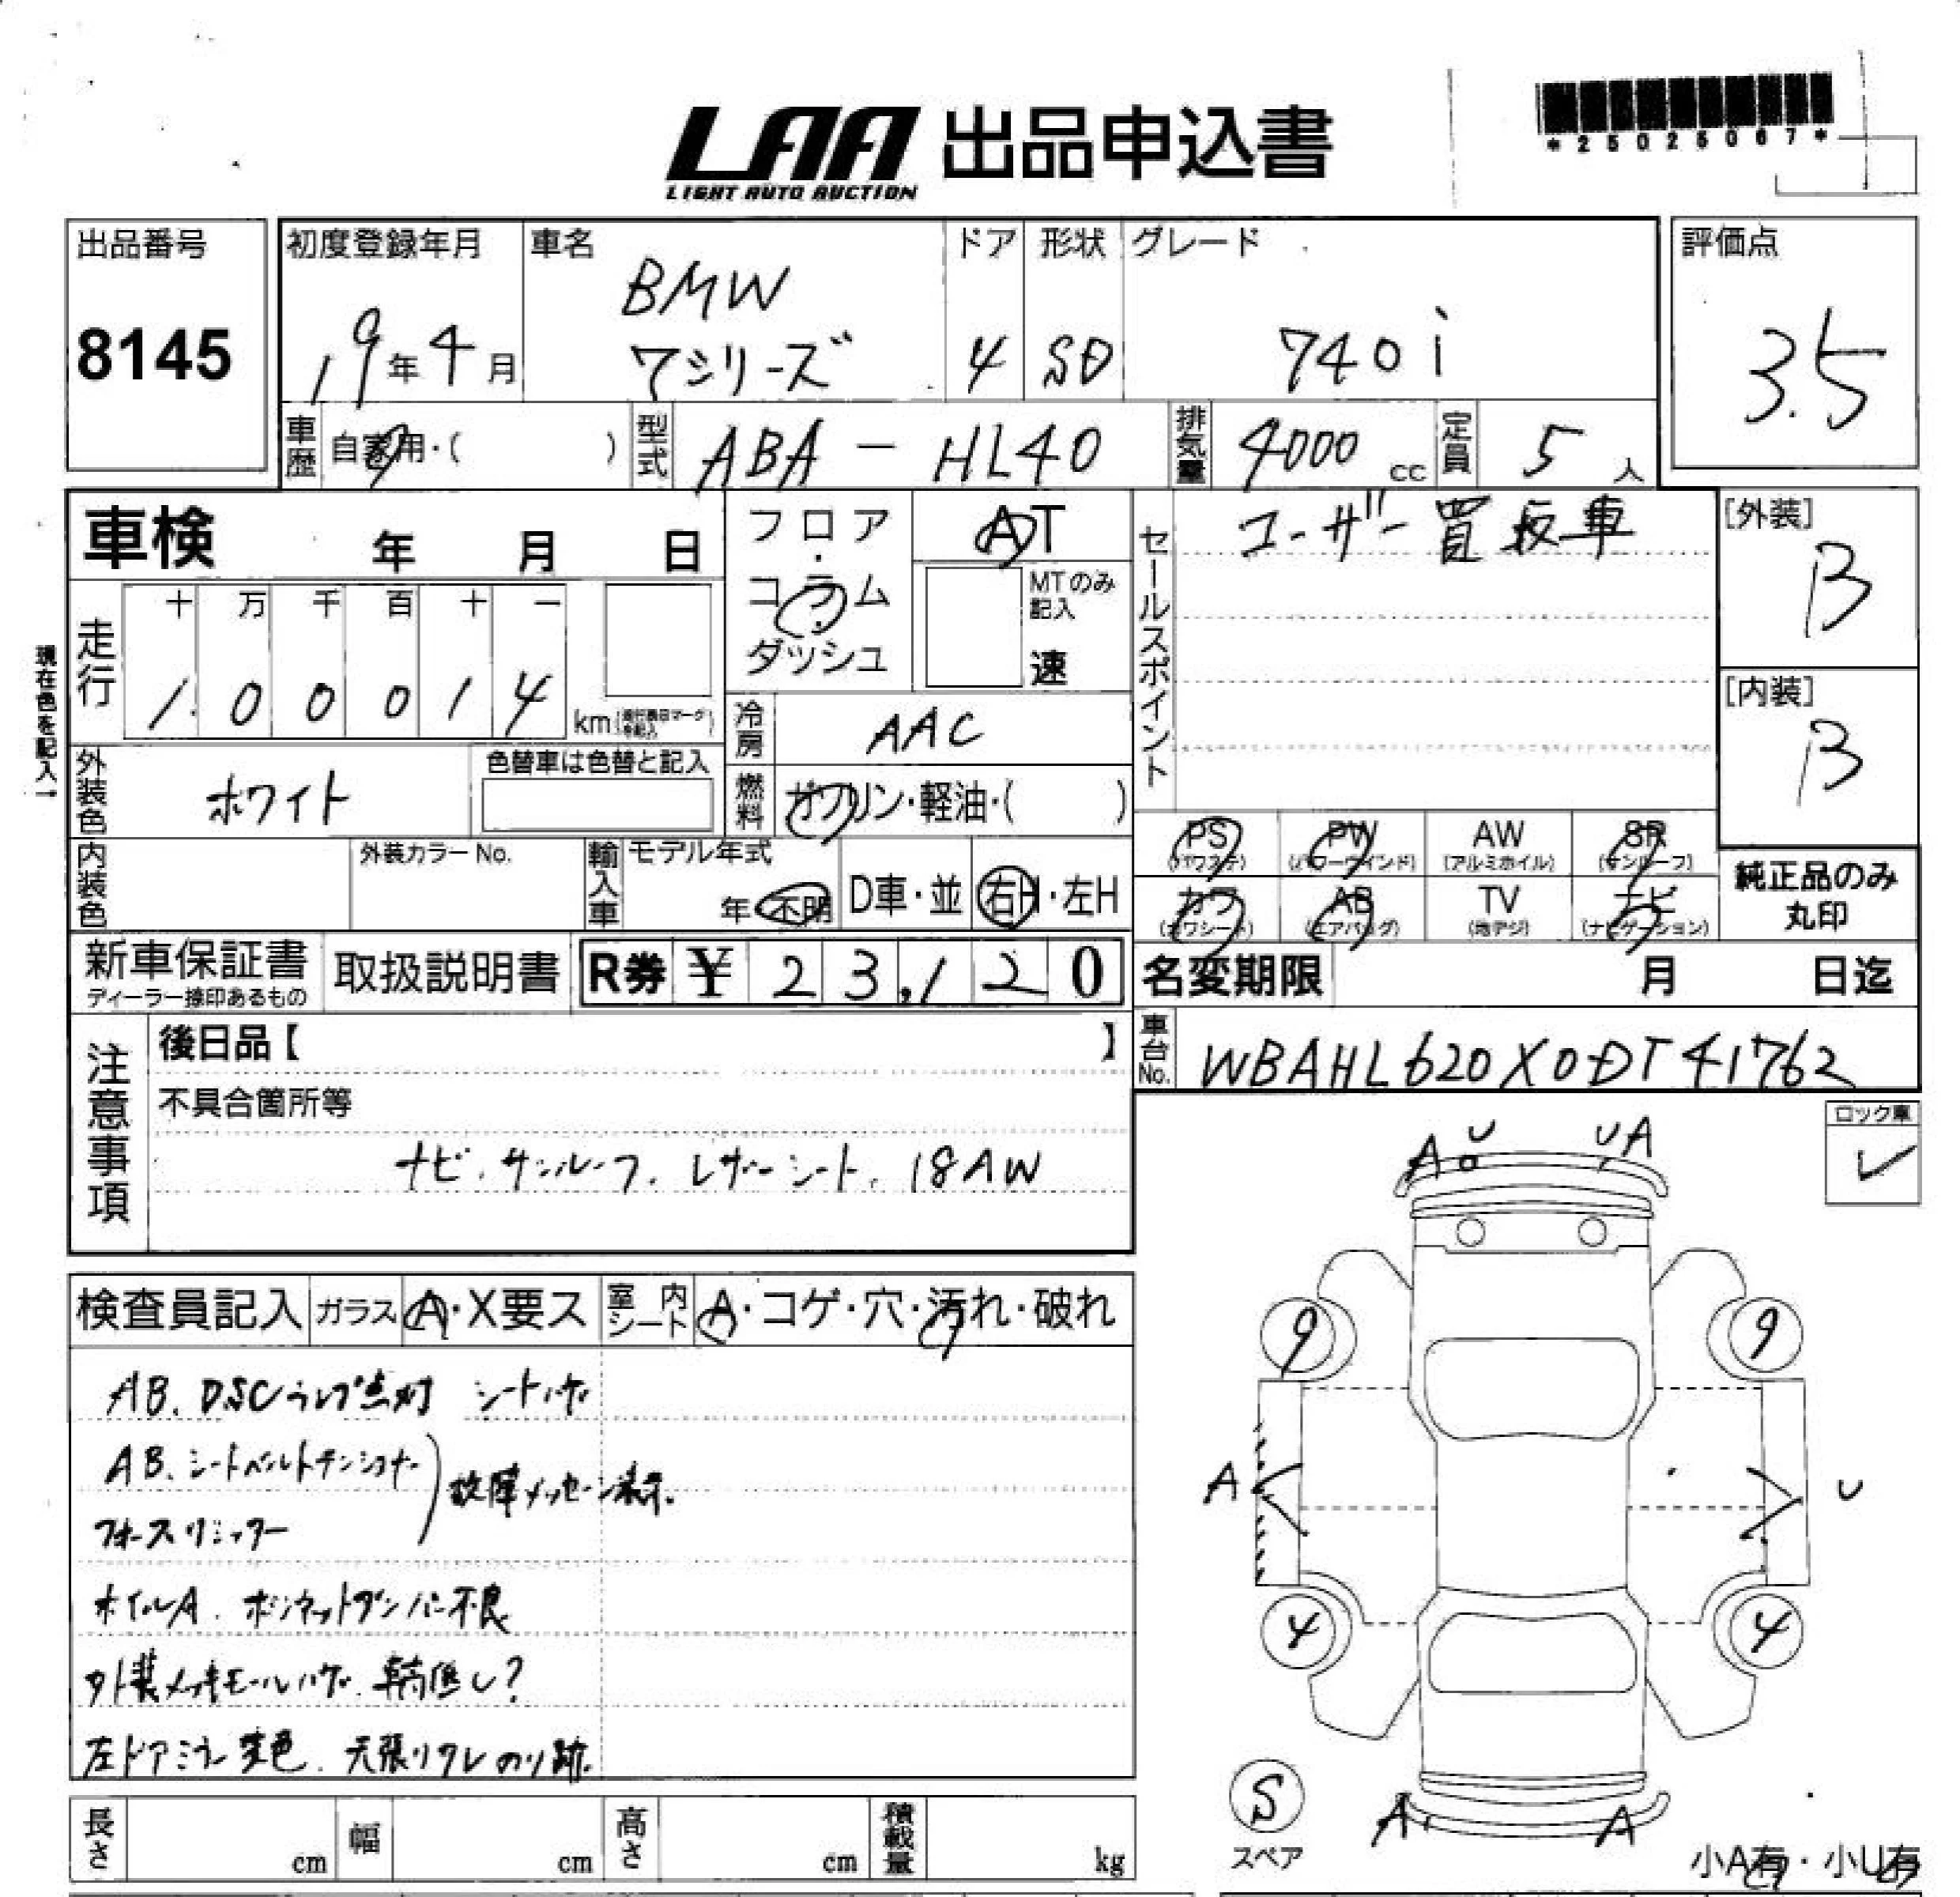 LAA 出品申込書
LIGHT AUTO AUCTION
*25025067*
出品番号
8145
初度登録年月
19年4月
車名
BMW
7シリーズ
ドア
4
形状
SD
グレード
740i
評価点
3.5
車歴
自家用・( )
型式
ABA-HL40
排気量
4000 cc
定員
5 人
車検 年 月 日
フロア
・
コラム
・
ダッシュ
AT
MTのみ
記入
速
セールスポイント
ユーザー買取車
[外装]
B
[内装]
B
現在色を記入→
走行
十 万 千 百 十 一
1 0 0 0 1 4
km
冷房
AAC
外装色
ホワイト
色替車は色替と記入
燃料
ガソリン・軽油・( )
内装色
外装カラーNo.
輸入車
モデル年式
年・不明
D車・並
右H・左H
PS
(パワステ)
PW
(パワーウインド)
AW
(アルミホイル)
SR
(サンルーフ)
カワ
(カワシート)
AB
(エアバッグ)
TV
(地デジ)
ナビ
(ナビゲーション)
純正品のみ
丸印
新車保証書
ディーラー捺印あるもの
取扱説明書
R券 ¥ 23,120
名変期限 月 日迄
注意事項
後日品【 】
不具合箇所等
ナビ、サンルーフ、レザーシート、18AW
車台No.
WBAHL620X0DT41762
ロック車
✓
検査員記入
ガラス
A・X要ス
室内シート
A・コゲ・穴・汚れ・破れ
AB、DSCランプ点灯 シートハゲ
AB、シートベルトテンショナー
フォースリミッター
故障メッセージ表示.
ホイルA. ボンネットダンパー不良
外装メッキモールハゲ. 車高低し?
左ドアミラー変色. 天張りタレのり跡.
A U U A
9 9
A U
4 4
S
スペア
A A
小A有・小U有
長さ cm
幅 cm
高さ cm
積載量 kg